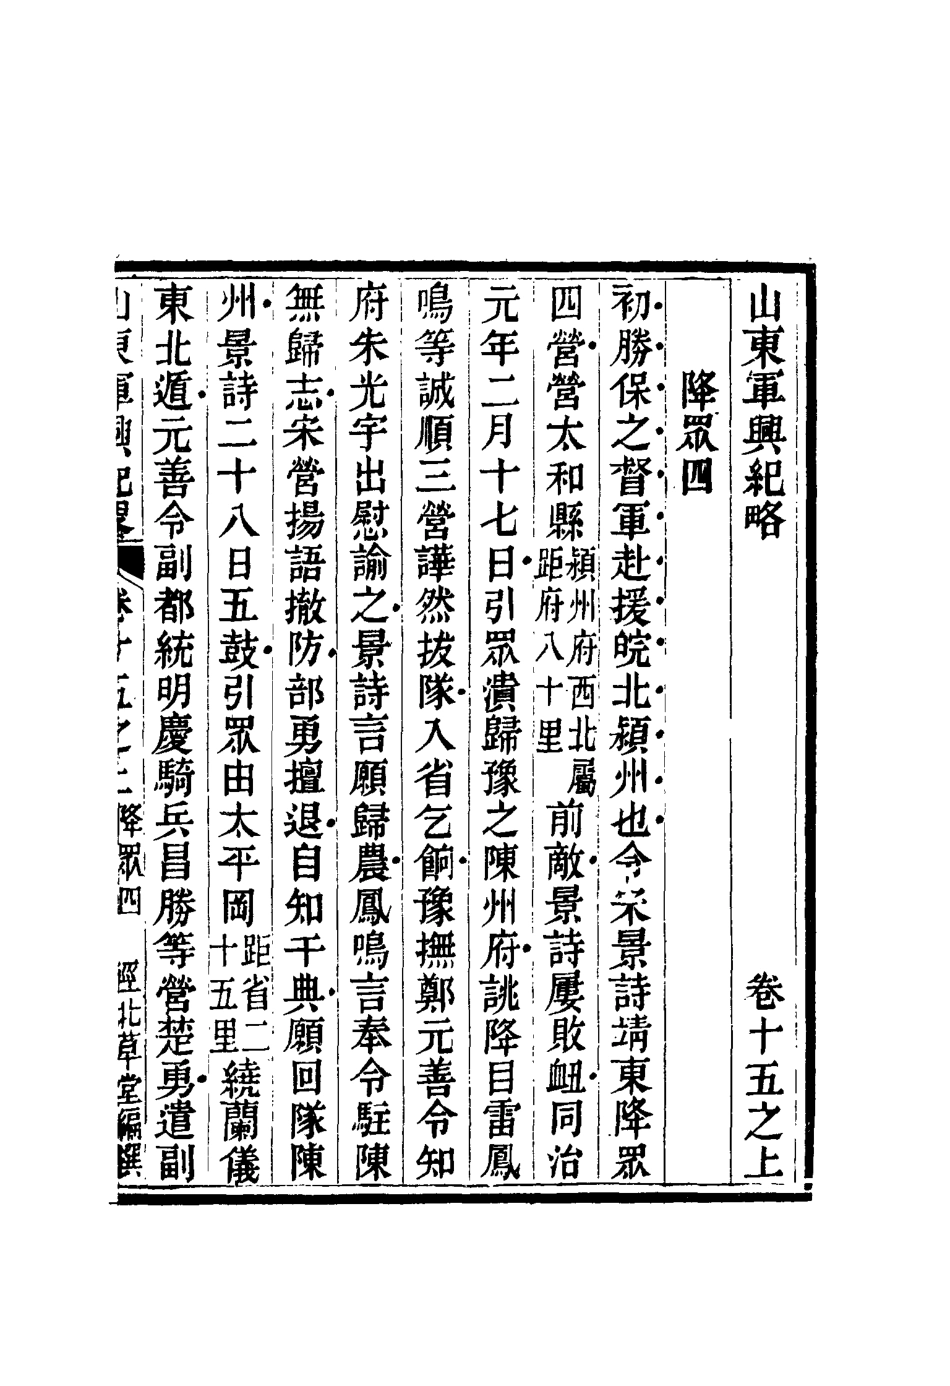 山東軍興紀略 卷十五之上
降眾四
初勝保之督軍赴援皖北潁州也令宋景詩靖東降眾
四營營太和縣潁州府西北屬距府八十里前敵景詩屢敗衄同治
元年二月十七日引眾潰歸豫之陳州府誂降目雷鳳
鳴等誠順三營譁然拔隊入省乞餉豫撫鄭元善令知
府朱光宇出慰諭之景詩言願歸農鳳鳴言奉令駐陳
無歸志宋營揚語撤防部勇擅退自知干典願回隊陳
州景詩二十八日五鼓引眾由太平岡距省二十五里繞蘭儀
東北遁元善令副都統明慶騎兵昌勝等營楚勇遣副
山東軍興紀略 卷十五之上 降眾四 經北草堂編撰